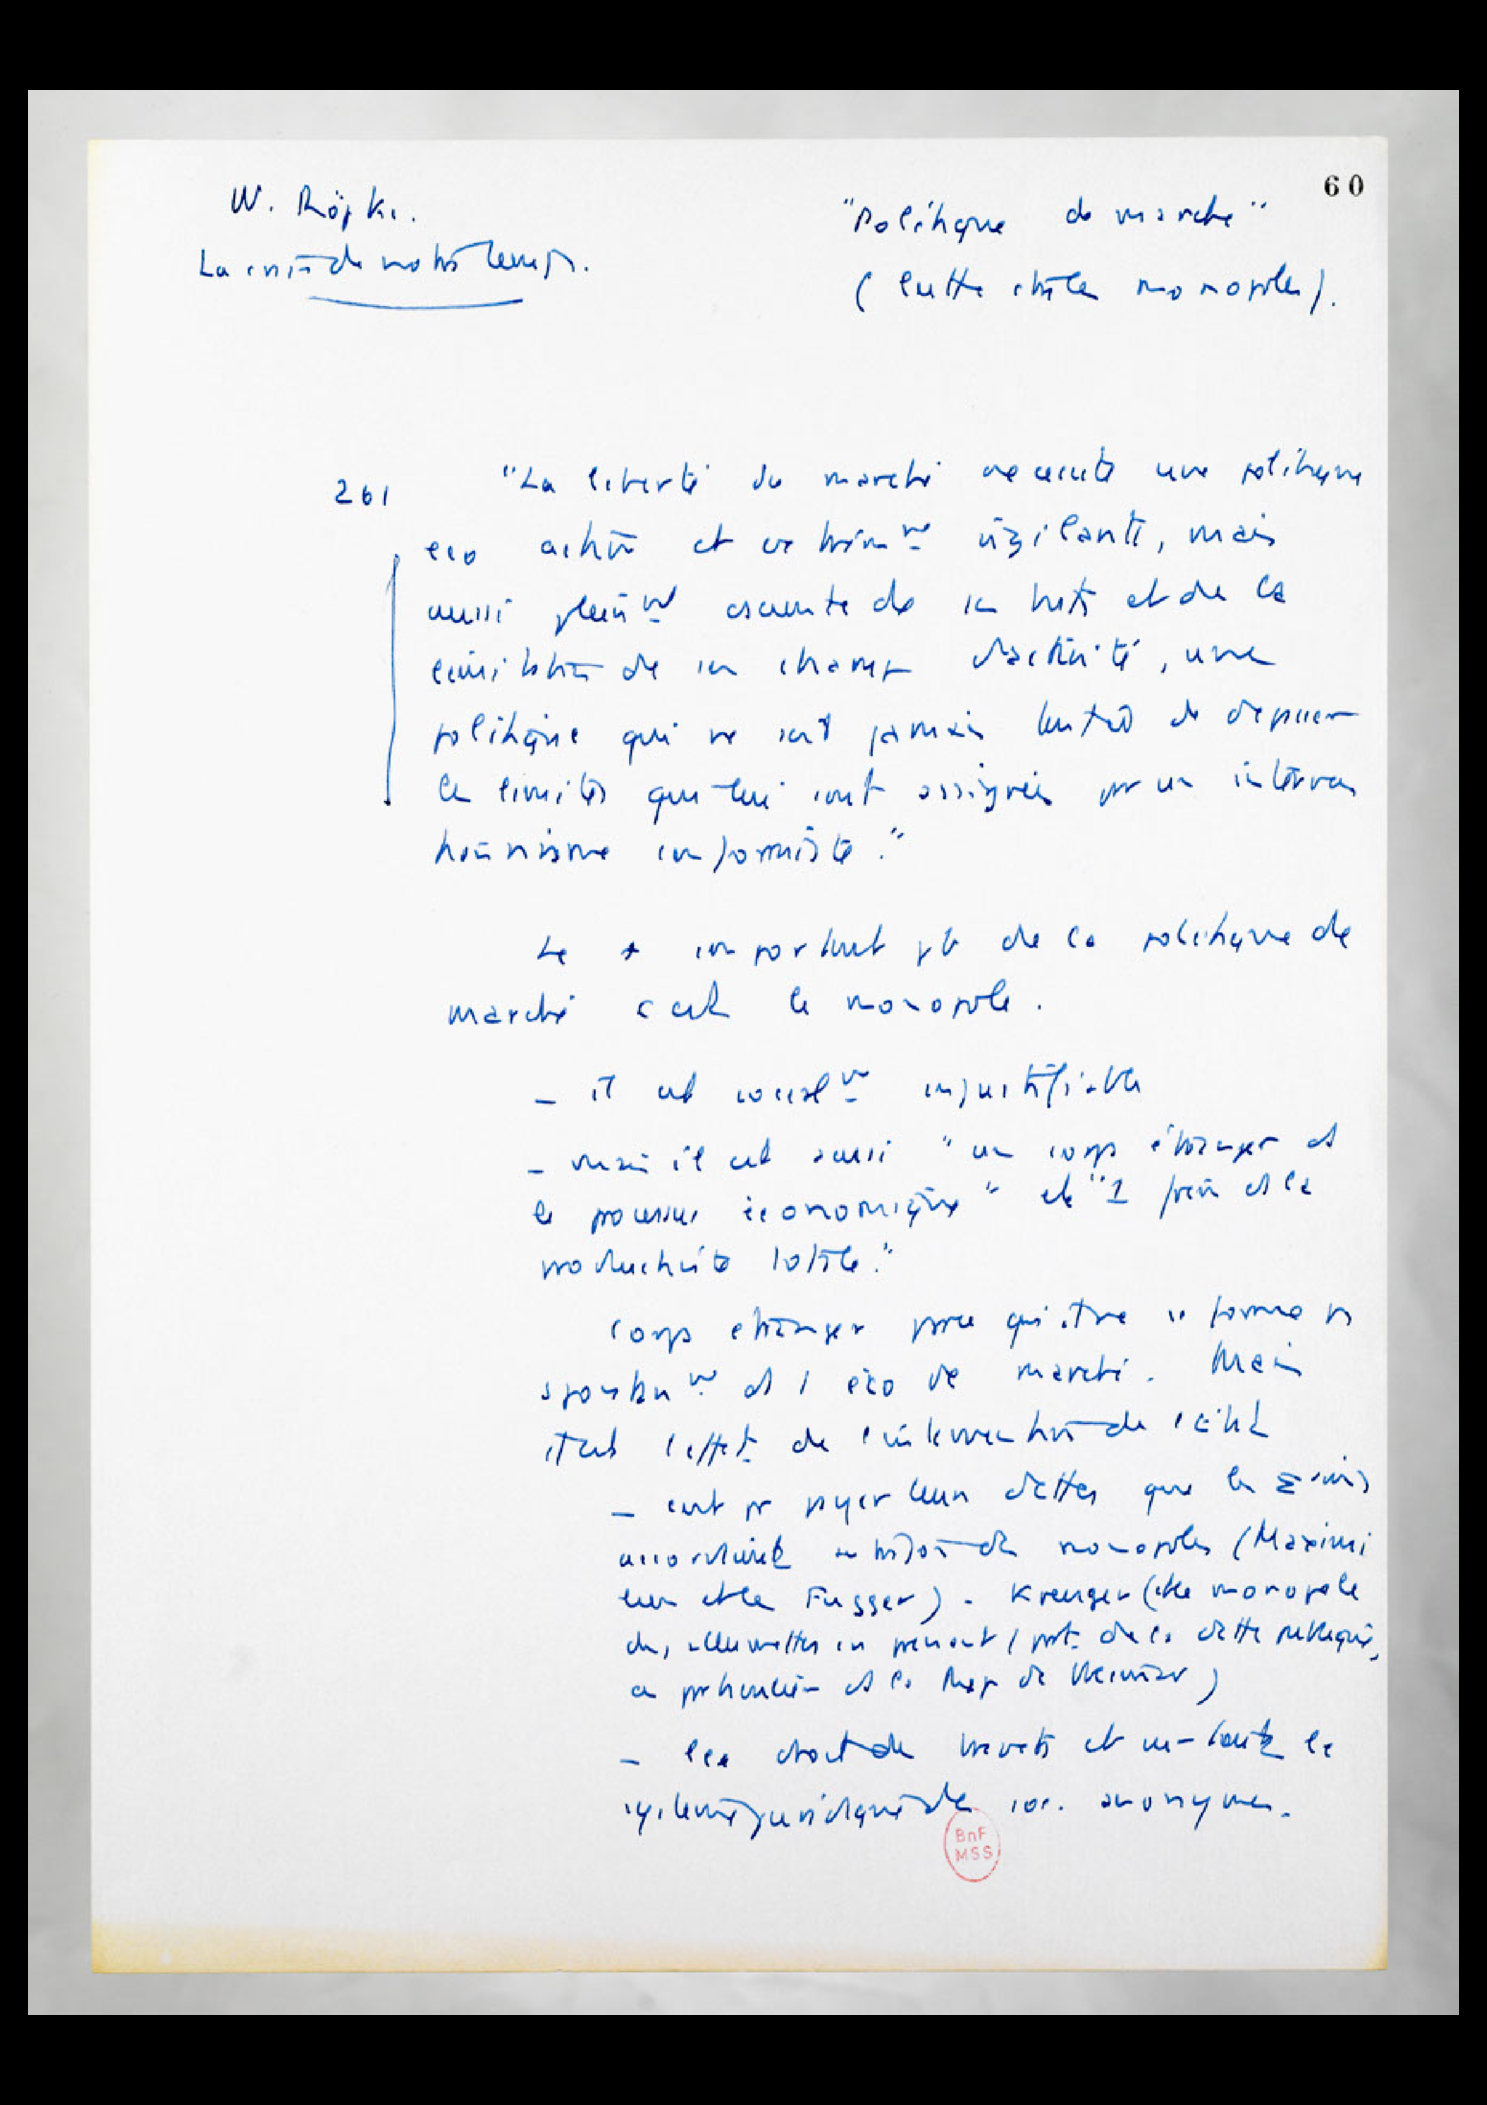 60
W. Röpke.
La crise de notre temps.
"Politique de marché"
(lutte ctre les monopoles).
261
"La liberté du marché nécessite une politique
eco active et extrêmemt vigilante, mais
aussi pleinemt consciente de son but et de la
limitation de son champ d'activité, une
politique qui ne soit jamais tentée de dépasser
les limites qui lui sont assignées par un interven
tionnisme conformiste."
Le + important pb de la politique de
marché c'est le monopole.
– il est socialemt injustifiable
– mais il est aussi "un corps étranger ds
le processus économique" et "1 frein ds la
productivité totale."
Corps étranger parce qu'il ne se forme ps
spontanemt ds l'éco de marché. Mais
il est l'effet de l'intervention de l'état
– c'est pr payer leurs dettes que les
accordaient monopoles (Maximi
lien et les Fugger). Kreuger (et le monopole
des allumettes en prenant 1 part. de la dette publique,
en particulier ds la Rep de Weimar)
– les droits des brevets et surtout le
système juridique des soc. anonymes.
BnF
MSS